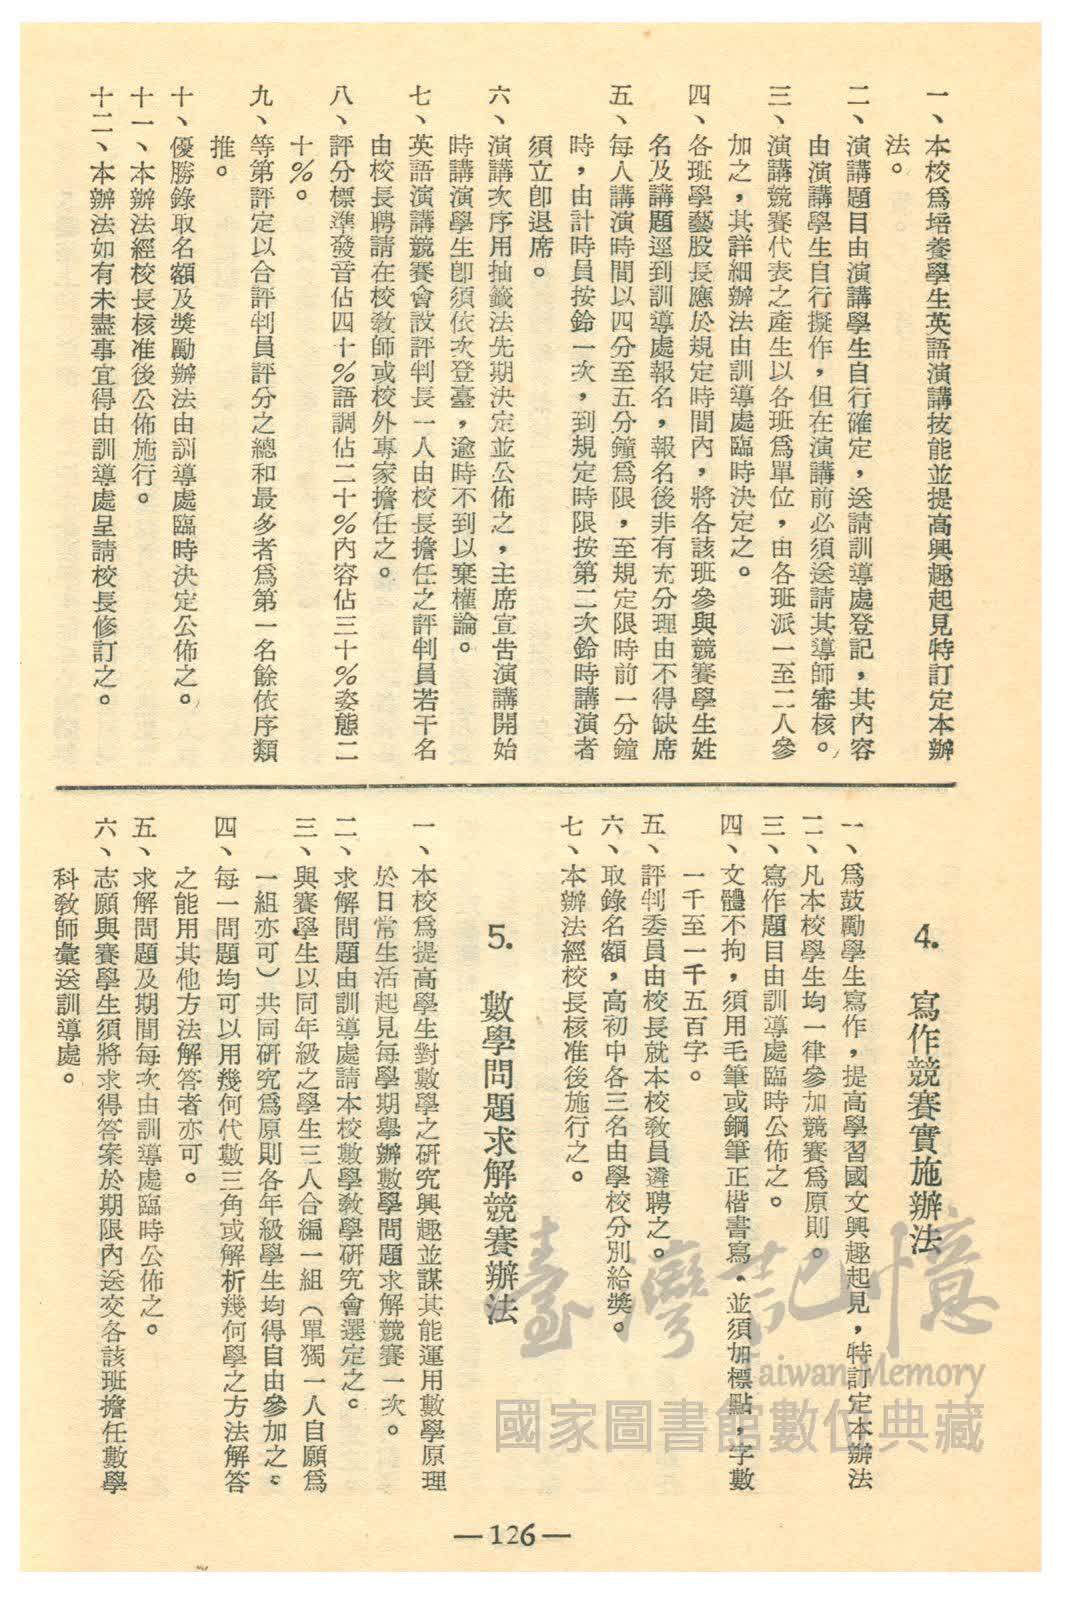 一、本校爲培養學生英語演講技能並提高興趣起見特訂定本辦
法。
二、演講題目由演講學生自行確定，送請訓導處登記，其內容
由演講學生自行擬作，但在演講前必須送請其導師審核。
三、演講競賽代表之產生以各班爲單位，由各班派一至二人參
加之，其詳細辦法由訓導處臨時決定之。
四、各班學藝股長應於規定時間內，將各該班參與競賽學生姓
名及講題逕到訓導處報名，報名後非有充分理由不得缺席
五、每人講演時間以四分至五分鐘爲限，至規定限時前一分鐘
時，由計時員按鈴一次，到規定時限按第二次鈴時講演者
須立卽退席。
六、演講次序用抽籤法先期決定並公佈之，主席宣告演講開始
時講演學生卽須依次登臺，逾時不到以棄權論。
七、英語演講競賽會設評判長一人由校長擔任之評判員若干名
由校長聘請在校敎師或校外專家擔任之。
八、評分標準發音佔四十％語調佔二十％內容佔三十％姿態二
十％。
九、等第評定以合評判員評分之總和最多者爲第一名餘依序類
推。
十、優勝錄取名額及獎勵辦法由訓導處臨時決定公佈之。
十一、本辦法經校長核准後公佈施行。
十二、本辦法如有未盡事宜得由訓導處呈請校長修訂之。
4. 寫作競賽實施辦法
一、爲鼓勵學生寫作，提高學習國文興趣起見，特訂定本辦法
二、凡本校學生均一律參加競賽爲原則。
三、寫作題目由訓導處臨時公佈之。
四、文體不拘，須用毛筆或鋼筆正楷書寫．並須加標點，字數
一千至一千五百字。
五、評判委員由校長就本校敎員遴聘之。
六、取錄名額，高初中各三名由學校分別給獎。
七、本辦法經校長核准後施行之。
5. 數學問題求解競賽辦法
一、本校爲提高學生對數學之研究興趣並謀其能運用數學原理
於日常生活起見每學期舉辦數學問題求解競賽一次。
二、求解問題由訓導處請本校數學敎學研究會選定之。
三、與賽學生以同年級之學生三人合編一組（單獨一人自願爲
一組亦可）共同研究爲原則各年級學生均得自由參加之。
四、每一問題均可以用幾何代數三角或解析幾何學之方法解答
之能用其他方法解答者亦可。
五、求解問題及期間每次由訓導處臨時公佈之。
六、志願與賽學生須將求得答案於期限內送交各該班擔任數學
科敎師彙送訓導處。
臺灣記憶
Taiwan Memory
國家圖書館數位典藏
—126—